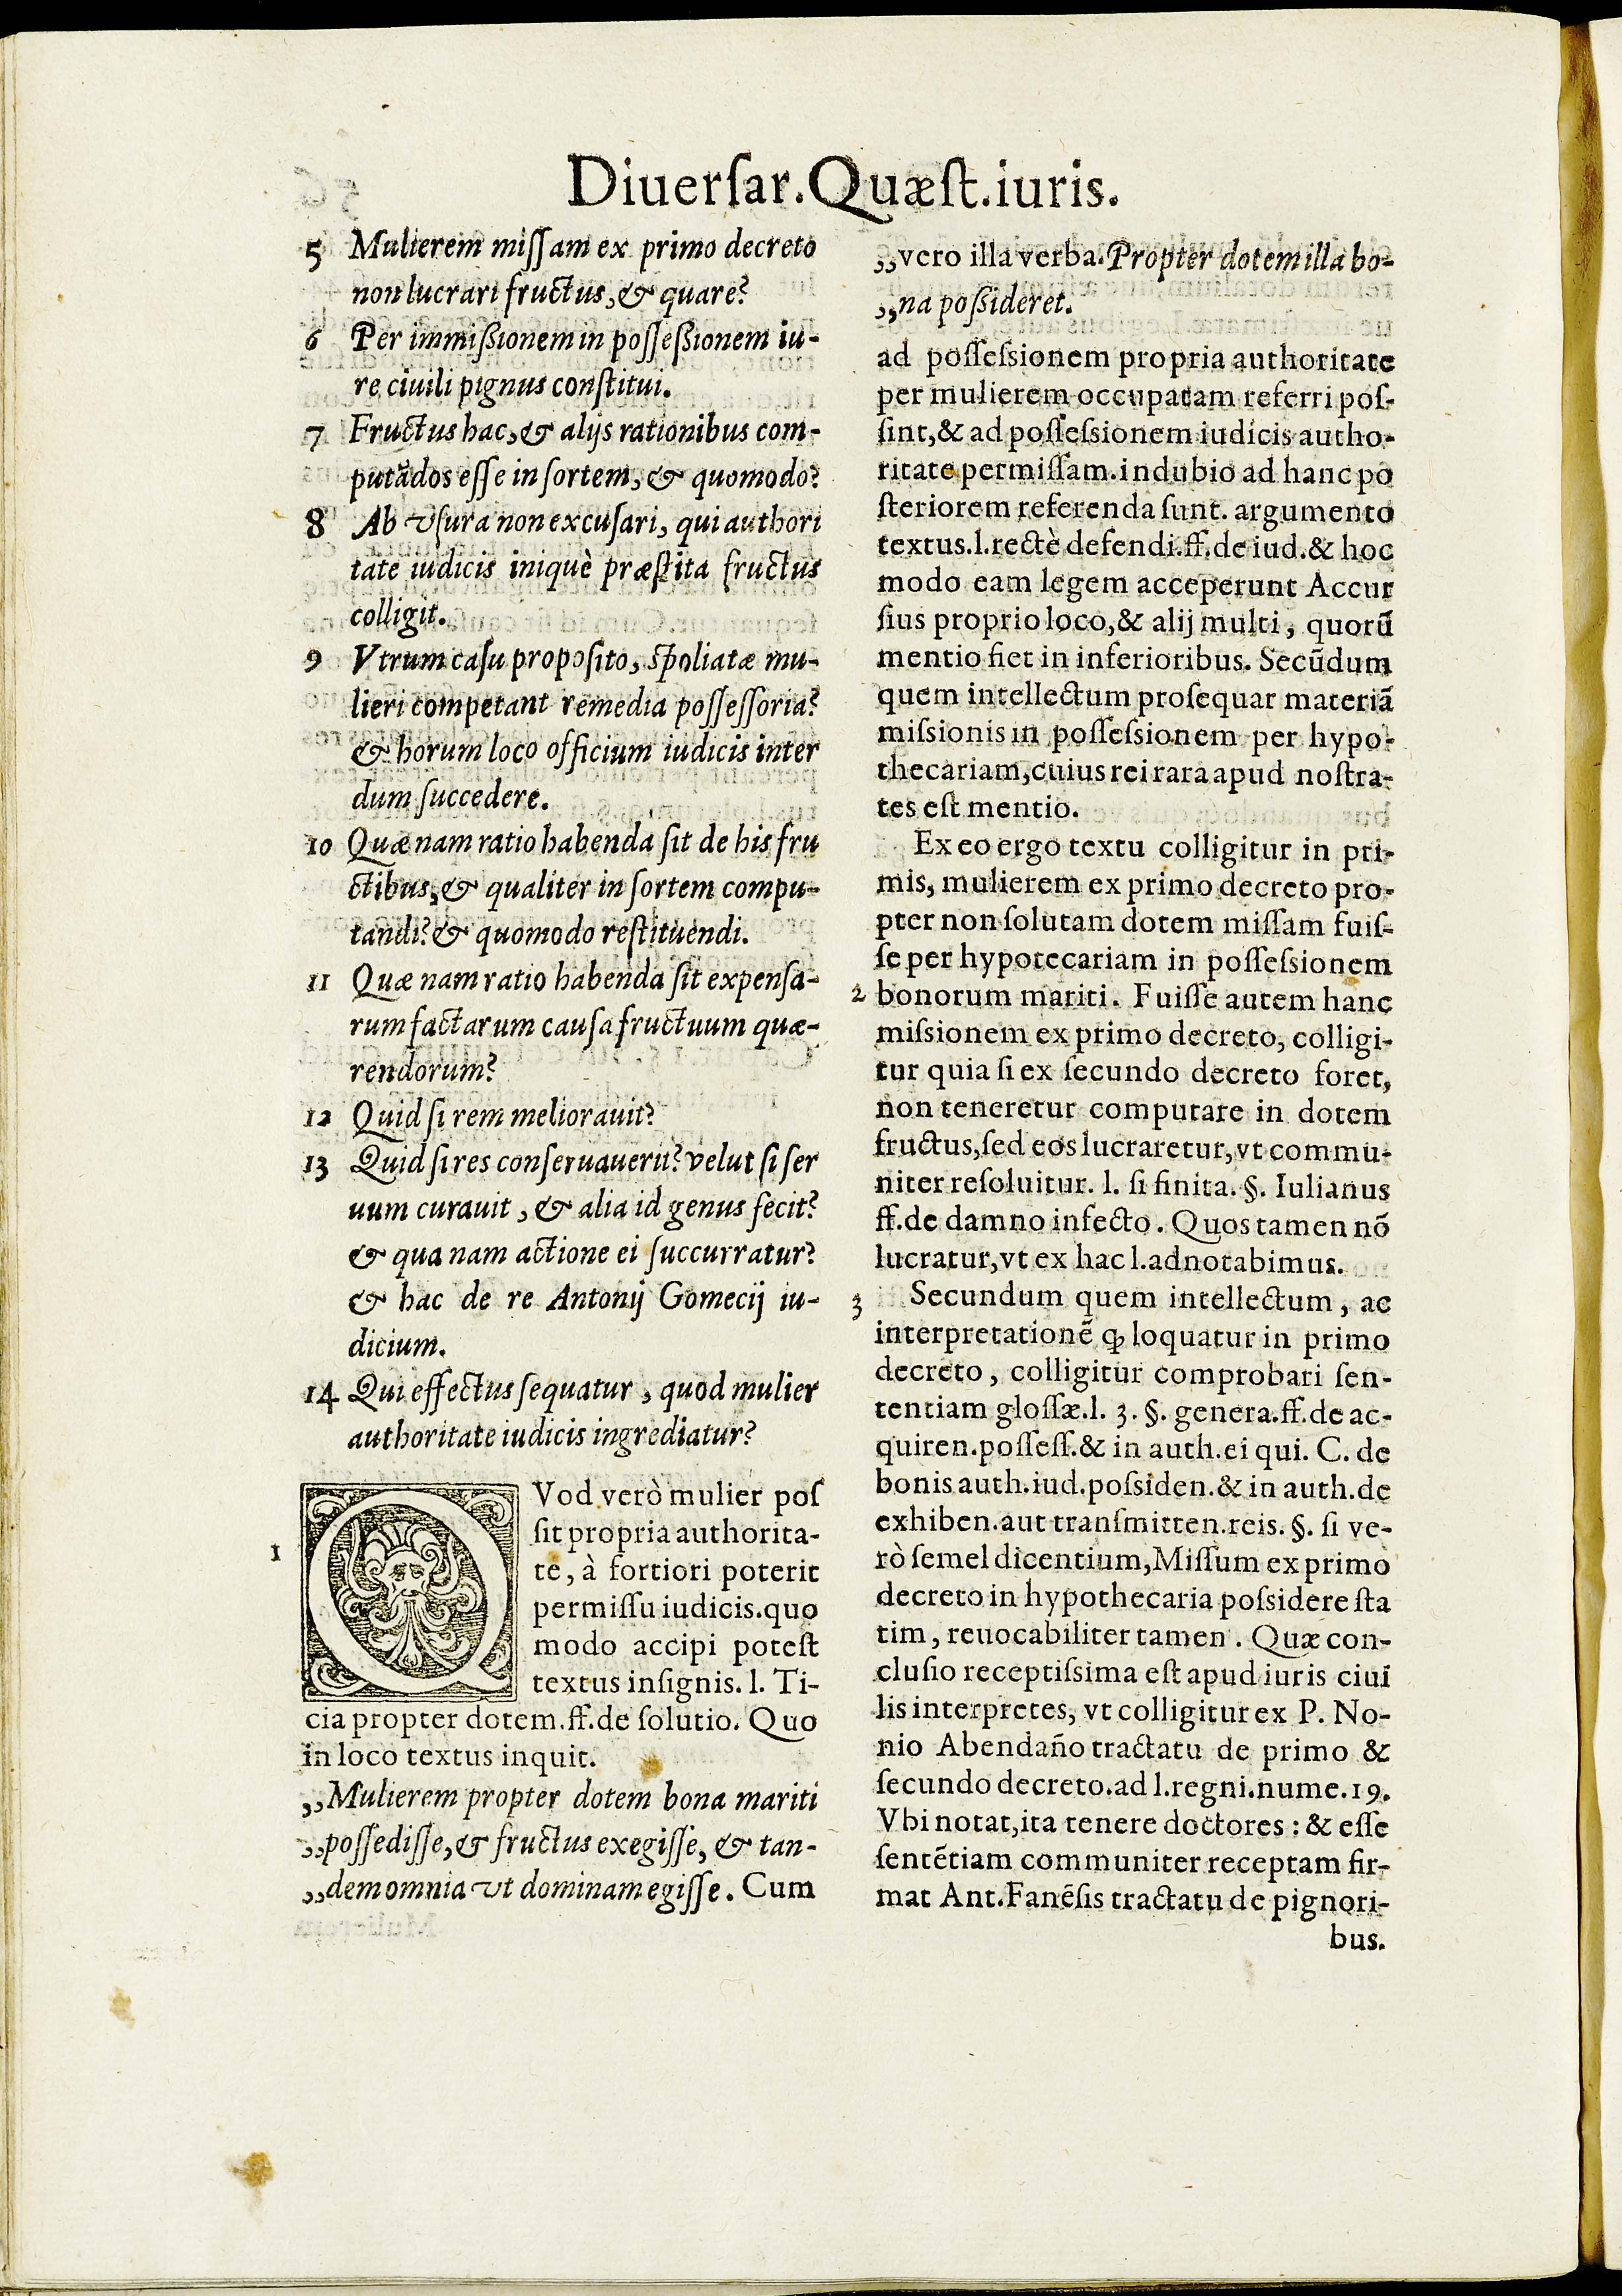 Diuerſar.Quæſt.iuris.
5 Mulierem miſſam ex primo decreto
non lucrari fructus, & quare?
6 Per immiſsionem in poſſeſsionem iu-
re ciuili pignus conſtitui.
7 Fructus hac, & alijs rationibus com-
putādos eſſe in ſortem, & quomodo?
8 Ab vſura non excuſari, qui authori
tate iudicis iniquè præſtita fructus
colligit.
9 Vtrum caſu propoſito, ſpoliatæ mu-
lieri competant remedia poſſeſſoria?
& horum loco officium iudicis inter
dum ſuccedere.
10 Quæ nam ratio habenda ſit de his fru
ctibus, & qualiter in ſortem compu-
tandi? & quomodo reſtituendi.
11 Quæ nam ratio habenda ſit expenſa-
rum factarum cauſa fructuum quæ-
rendorum?
12 Quid ſi rem meliorauit?
13 Quid ſi res conſeruauerit? velut ſi ſer
uum curauit, & alia id genus fecit?
& qua nam actione ei ſuccurratur?
& hac de re Antonij Gomecij iu-
dicium.
14 Qui effectus ſequatur, quod mulier
authoritate iudicis ingrediatur?
1 QVod verò mulier poſ
ſit propria authorita-
te, à fortiori poterit
permiſſu iudicis. quo
modo accipi poteſt
textus inſignis. l. Ti-
cia propter dotem. ff. de ſolutio. Quo
in loco textus inquit.
,,Mulierem propter dotem bona mariti
,,poſſediſſe, & fructus exegiſſe, & tan-
,,dem omnia vt dominam egiſſe. Cum
,,vero illa verba. Propter dotem illa bo-
,,na poſsideret.
ad poſſeſsionem propria authoritate
per mulierem occupatam referri poſ-
ſint, & ad poſſeſsionem iudicis autho-
ritate permiſſam. in dubio ad hanc po
ſteriorem referenda ſunt. argumento
textus. l. rectè defendi. ff. de iud. & hoc
modo eam legem acceperunt Accur
ſius proprio loco, & alij multi, quorū
mentio fiet in inferioribus. Secūdum
quem intellectum proſequar materiā
miſsionis in poſſeſsionem per hypo-
thecariam, cuius rei rara apud noſtra-
tes eſt mentio.
Ex eo ergo textu colligitur in pri-
mis, mulierem ex primo decreto pro-
pter non ſolutam dotem miſſam fuiſ-
ſe per hypotecariam in poſſeſsionem
2 bonorum mariti. Fuiſſe autem hanc
miſsionem ex primo decreto, colligi-
tur quia ſi ex ſecundo decreto foret,
non teneretur computare in dotem
fructus, ſed eos lucraretur, vt commu-
niter reſoluitur. l. ſi finita. §. Iulianus
ff. de damno infecto. Quos tamen nō
lucratur, vt ex hac l. adnotabimus.
3 Secundum quem intellectum, ac
interpretationē ꝙ loquatur in primo
decreto, colligitur comprobari ſen-
tentiam gloſſæ. l. 3. §. genera. ff. de ac-
quiren. poſſeſſ. & in auth. ei qui. C. de
bonis auth. iud. poſsiden. & in auth. de
exhiben. aut tranſmitten. reis. §. ſi ve-
rò ſemel dicentium, Miſſum ex primo
decreto in hypothecaria poſsidere ſta
tim, reuocabiliter tamen. Quæ con-
cluſio receptiſsima eſt apud iuris ciui
lis interpretes, vt colligitur ex P. No-
nio Abendaño tractatu de primo &
ſecundo decreto. ad l. regni. nume. 19.
Vbi notat, ita tenere doctores: & eſſe
ſentētiam communiter receptam fir-
mat Ant. Fanēſis tractatu de pignori-
bus.